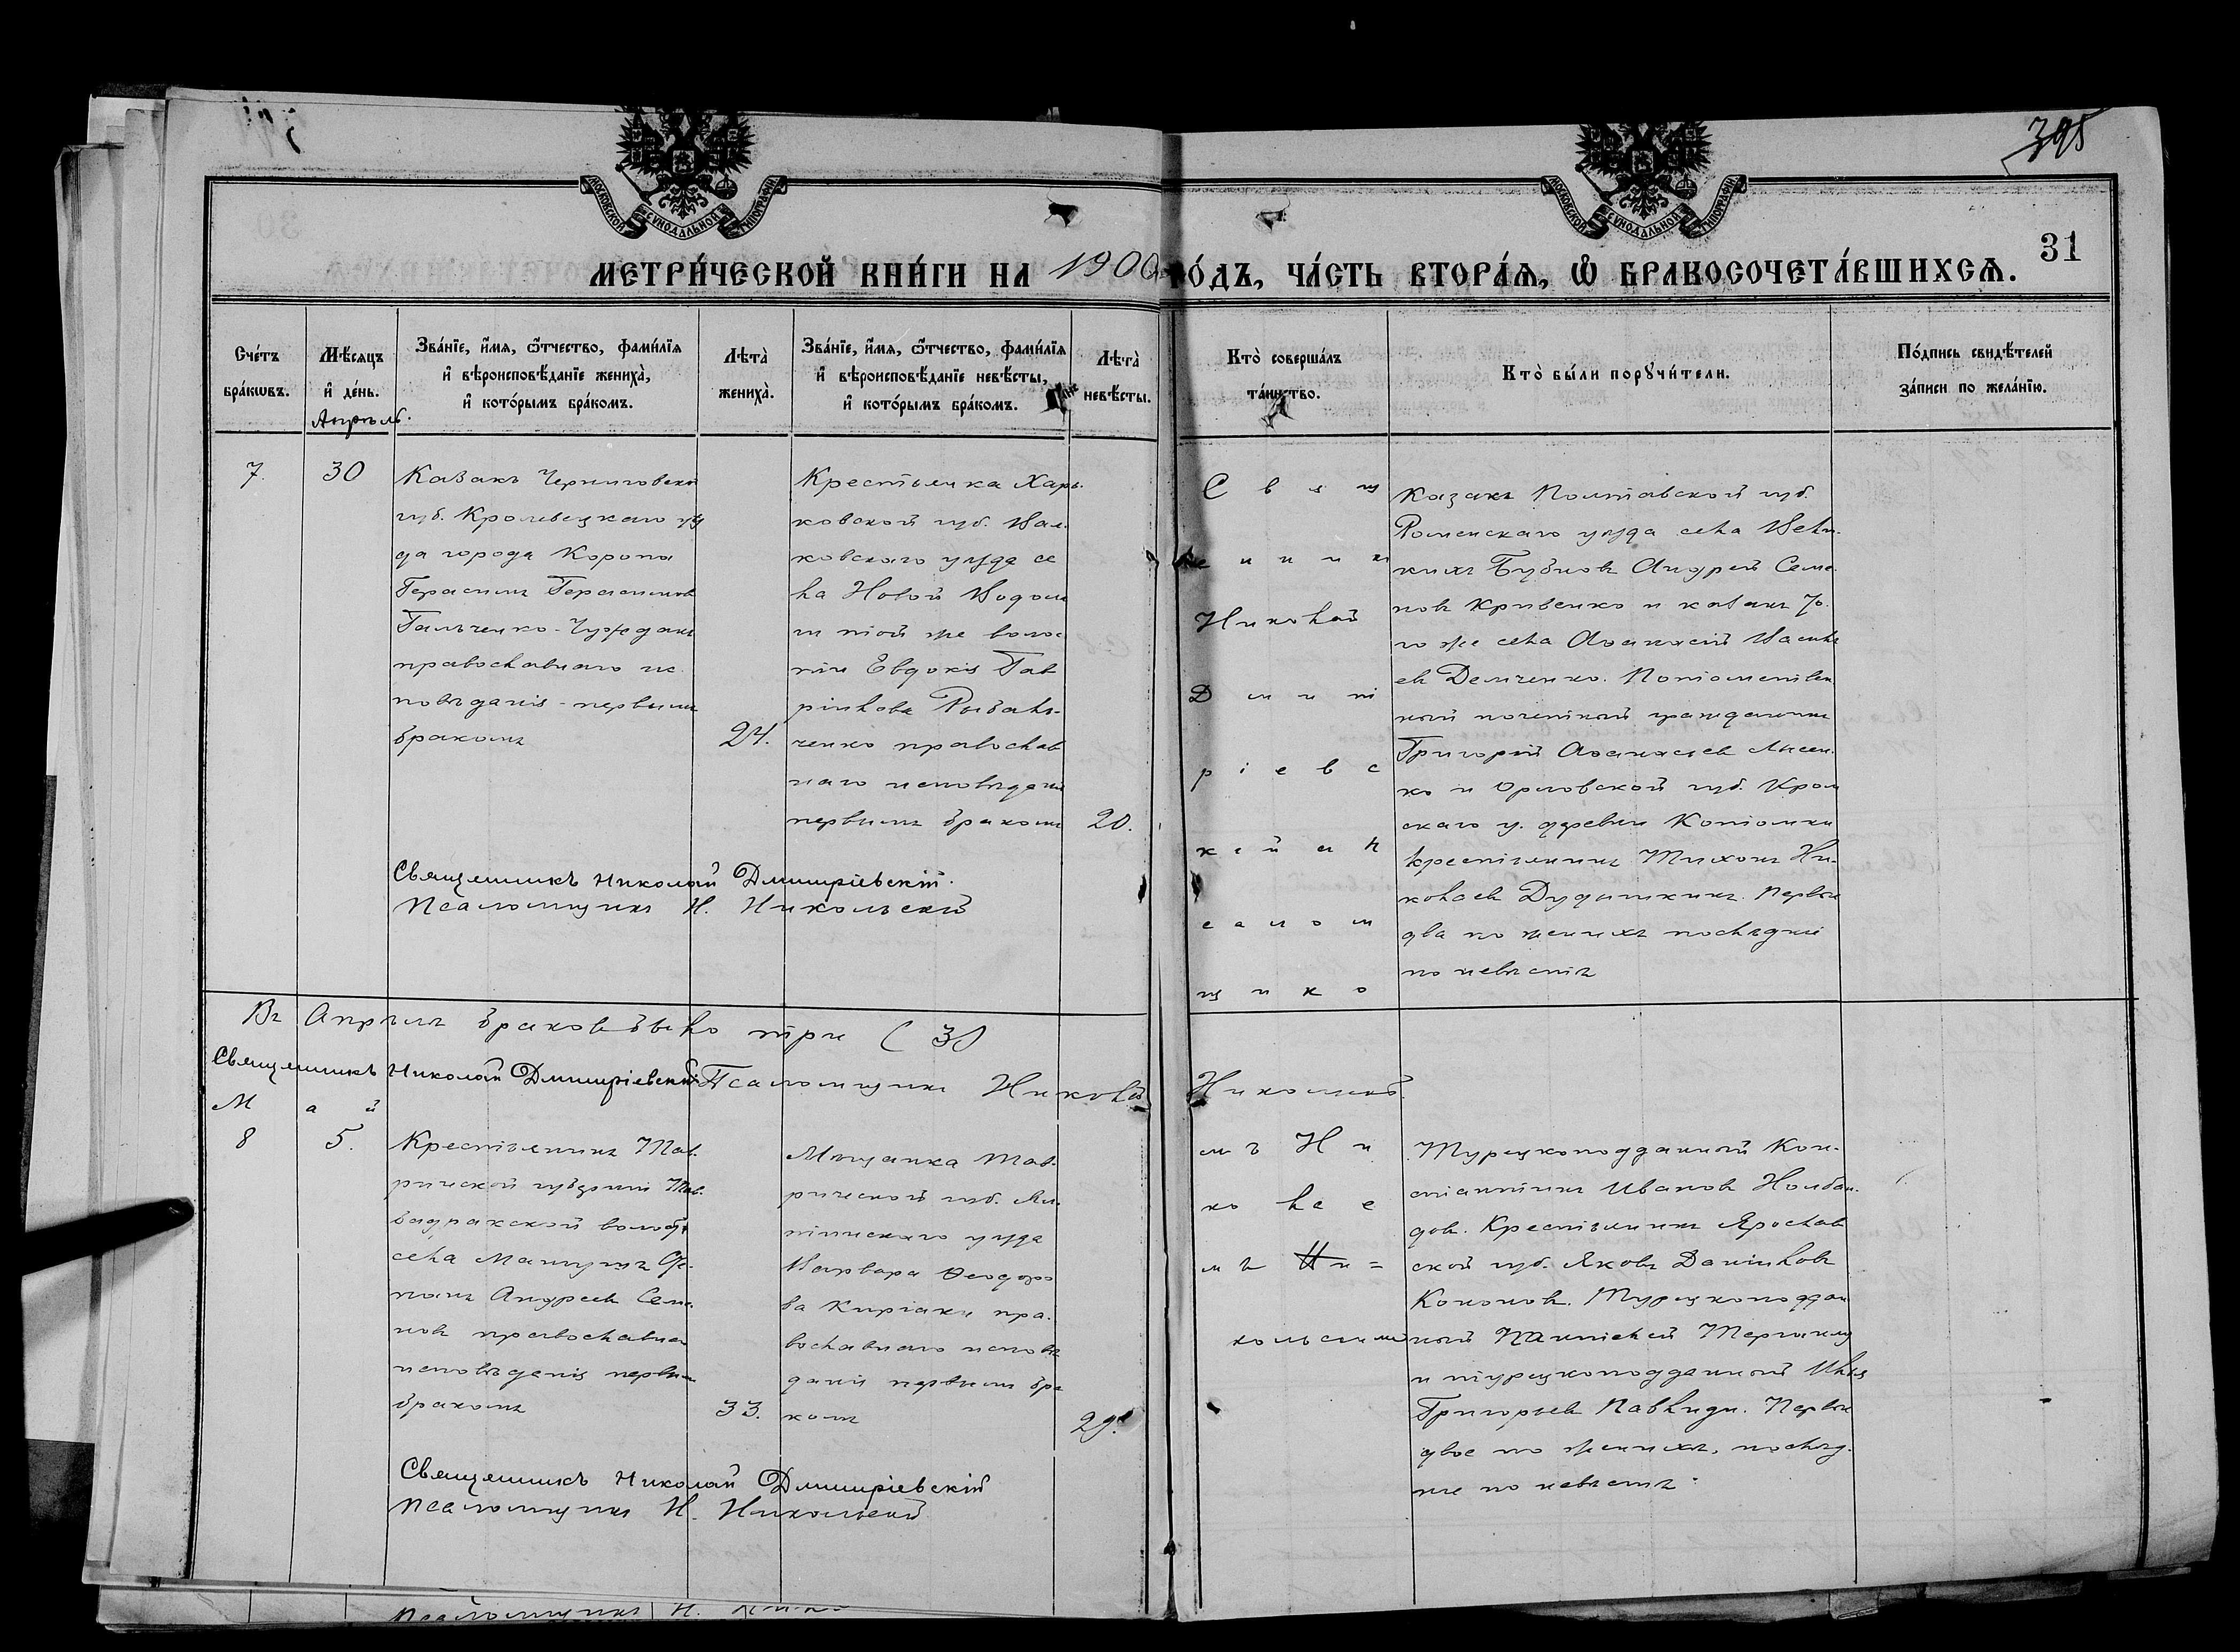 395
31
МОСКОВСКОЙ СѴНОДАЛЬНОЙ ТИПОГРАФІИ
МОСКОВСКОЙ СѴНОДАЛЬНОЙ ТИПОГРАФІИ
МЕТРИ́ЧЕСКОЙ КНИ́ГИ НА 1900 ГО́ДЪ, ЧА́СТЬ ВТОРА́Ѧ, Ѽ БРАКОСОЧЕТА́ВШИХСѦ.
Сче́тъ
бра́кѡвъ.
Мѣ́сяцъ
и҆ де́нь.
Апрѣль.
Зва́нїе, и҆́мя, ѻ҆́тчество, фами́лїя
и҆ вѣроисповѣ́данїе жениха̀,
и҆ кото́рымъ бра́комъ.
Лѣта̀
жениха̀.
Зва́нїе, и҆́мя, ѻ҆́тчество, фами́лїя
и҆ вѣроисповѣ́данїе невѣ́сты,
и҆ кото́рымъ бра́комъ.
Лѣта̀
невѣ́сты.
Кто̀ соверша́лъ
та́инство.
Кто̀ бы́ли порꙋчи́тели.
По́дпись свидѣ́телей
за́писи по жела́нїю.
7.
30
Казакъ Черниговской
губ. Кролевецкаго уѣз
да города Коропа
Герасимъ Герасимовъ
Гальченко-Чужданъ
православнаго ис
повѣданія - первымъ
бракомъ
24.
Крестьянка Харь
ковской губ. Вал
ковскаго уѣзда се
ла Новой Водола
ги той же волос
ти Евдокія Гав
ріилова Рызаль-
ченко православ
наго исповѣданія
первымъ бракомъ
20.
Свящ
енник
Николай
Дмит
ріевс
кій съ п
салом
щико
Казакъ Полтавской губ.
Роменскаго уѣзда села Вели-
кихъ Бубновъ Андрей Семе
новъ Кривенко и казакъ то
го же села Аѳанасій Василь
евъ Демченко. Потомствен
ный почетный гражданинъ
Григорій Аѳанасьевъ Лысен
ко и Орловской губ. Кром
скаго у. деревни Котомки
крестьянинъ Тихонъ Ни-
колаевъ Дудышкинъ. Первые
два по женихѣ послѣдніе
по невѣстѣ
Священникъ Николай Дмитріевскій.
Псаломщикъ Н. Никольскій
Въ Апрѣлѣ браковъ было три (3)
Священникъ Николай Дмитріевскій Псаломщикъ Николай Никольскій
Май
8
5.
Крестьянинъ Тав
рической губерніи
волости
села
Андреевъ Семе
новъ православнаго
исповѣданія первымъ
бракомъ
33.
Мѣщанка Тав-
рической губ. Ял-
тинскаго уѣзда
Варвара Ѳеодоро
ва Киріаки пра
вославнаго исповѣ
данія первымъ бра
комъ
29.
мъ Ни
колае
мъ Ни=
кольскимъ
Турецкоподданный Кон-
стантинъ Ивановъ
Крестьянинъ Ярослав
ской губ. Яковъ Даніиловъ
Кононовъ. Турецкоподдан
ный Пантелей
и турецкоподданный Илья
Григорьевъ Павлиди. Первые
двое по женихѣ, послѣд-
ніе по невѣстѣ.
Священникъ Николай Дмитріевскій
Псаломщикъ Н. Никольскій
Псаломщикъ Н.